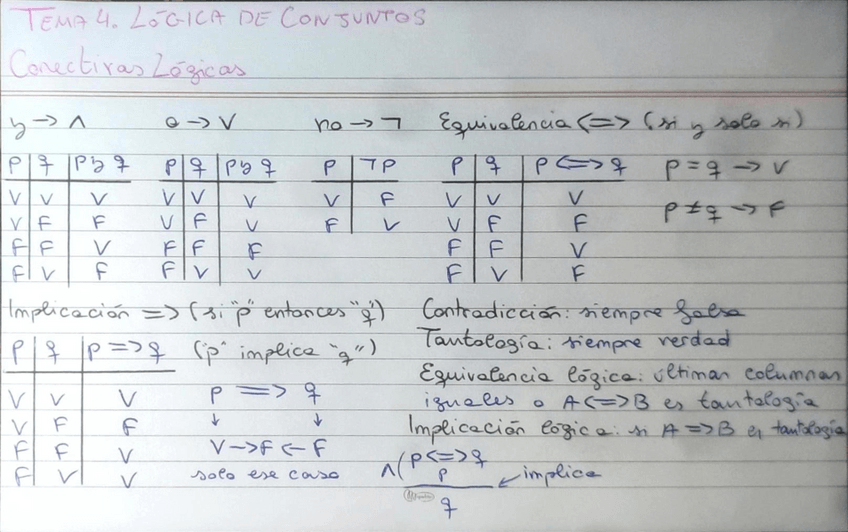 TEMA 4. LÓGICA DE CONJUNTOS
Conectivas Lógicas
y → ∧
o → V
no → ¬
Equivalencia <=> (si y solo si)
p q p y q
V V V
V F F
F F V
F V F
p q p y q
V V V
V F V
F F F
F V V
p ¬p
V F
F V
p q p <=> q
V V V
V F F
F F V
F V F
p = q → V
p ≠ q → F
Implicación => (si "p" entonces "q")
p q p => q ("p" implica "q")
V V V
V F F
F F V
F V V
p => q
↓ ↓
V → F ← F
solo ese caso
Contradicción: siempre falsa
Tautología: siempre verdad
Equivalencia lógica: últimas columnas
iguales o A <=> B es tautología
Implicación lógica: si A => B es tautología
∧( p <=> q
p ← implica
q